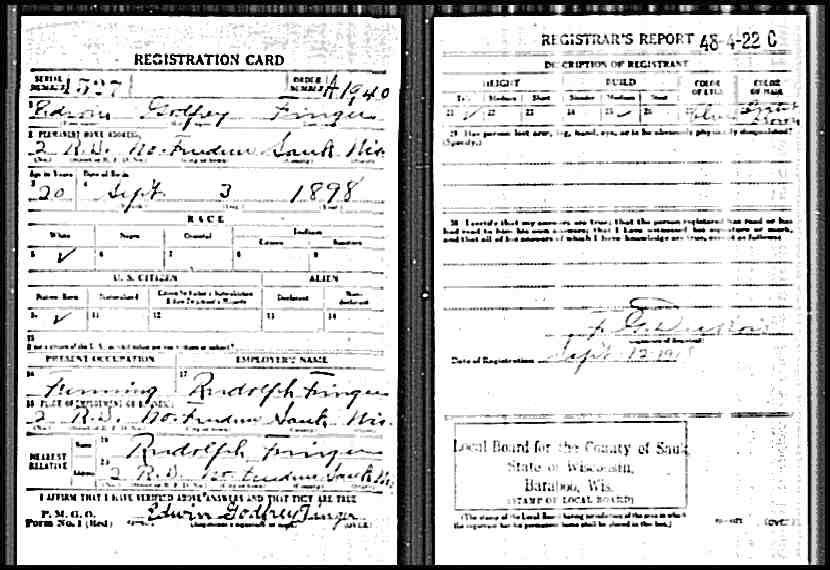 REGISTRATION CARD
SERIAL NUMBER 1527
ORDER NUMBER A1940
Edwin Godfrey Finger
PERMANENT HOME ADDRESS:
2 R.D. No. Freedom Sauk Wis.
Age in Years Date of Birth
20 Sept. 3 1898
RACE
White Negro Oriental Indian
Citizen
5 ✓ 6 7 8 9
U. S. CITIZEN ALIEN
Native Born Naturalized Declarant Non-declarant
10 ✓ 11 12 13 14
15
If not a citizen of the U.S., of what nation are you a citizen or subject?
PRESENT OCCUPATION EMPLOYER'S NAME
16 Farming 17 Rudolph Finger
18 PLACE OF EMPLOYMENT OR BUSINESS:
2 R.D. No. Freedom Sauk Wis.
NEAREST RELATIVE
Name 19 Rudolph Finger
Address 20 2 R.D. No. Freedom Sauk Wis
I AFFIRM THAT I HAVE VERIFIED ABOVE ANSWERS AND THAT THEY ARE TRUE
P. M. G. O.
Form No. 1 (Red) Edwin Godfrey Finger
(Registrant's signature or mark) (OVER)
REGISTRAR'S REPORT 48-4-22 C
DESCRIPTION OF REGISTRANT
HEIGHT BUILD COLOR OF EYES COLOR OF HAIR
Tall Medium Short Slender Medium Stout
21 ✓ 22 23 24 25 ✓ 26 27 Blue 28 Brown
29 Has person lost arm, leg, hand, eye, or is he obviously physically disqualified?
(Specify.)
30 I certify that my answers are true; that the person registered has read or has
had read to him his own answers; that I have witnessed his signature or mark,
and that all of his answers of which I have knowledge are true, except as follows:
(Signature of Registrar)
Date of Registration Sept. 12 1918
Local Board for the County of Sauk
State of Wisconsin,
Baraboo, Wis.
(STAMP OF LOCAL BOARD)
(The stamp of the Local Board having jurisdiction of the area in which
the registrant has his permanent home shall be placed in this box.)
(OVER)